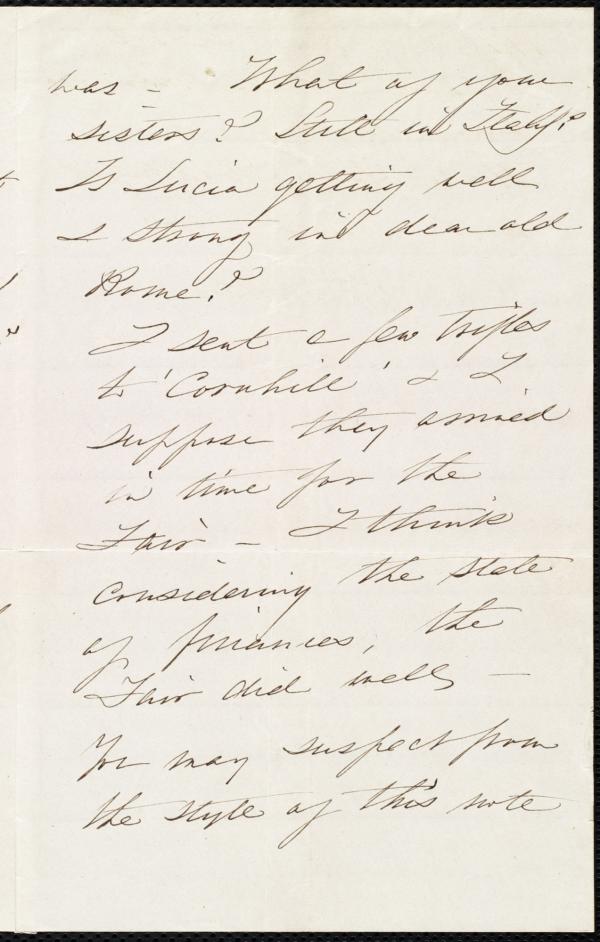 was – What of your
sisters? Still in Italy?
Is Lucia getting well
& strong in dear old
Rome?
I sent a few trifles
to 'Cornhill' & I
suppose they arrived
in time for the
Fair – I think
considering the state
of finances, the
Fair did well –
You may suspect from
the style of this note